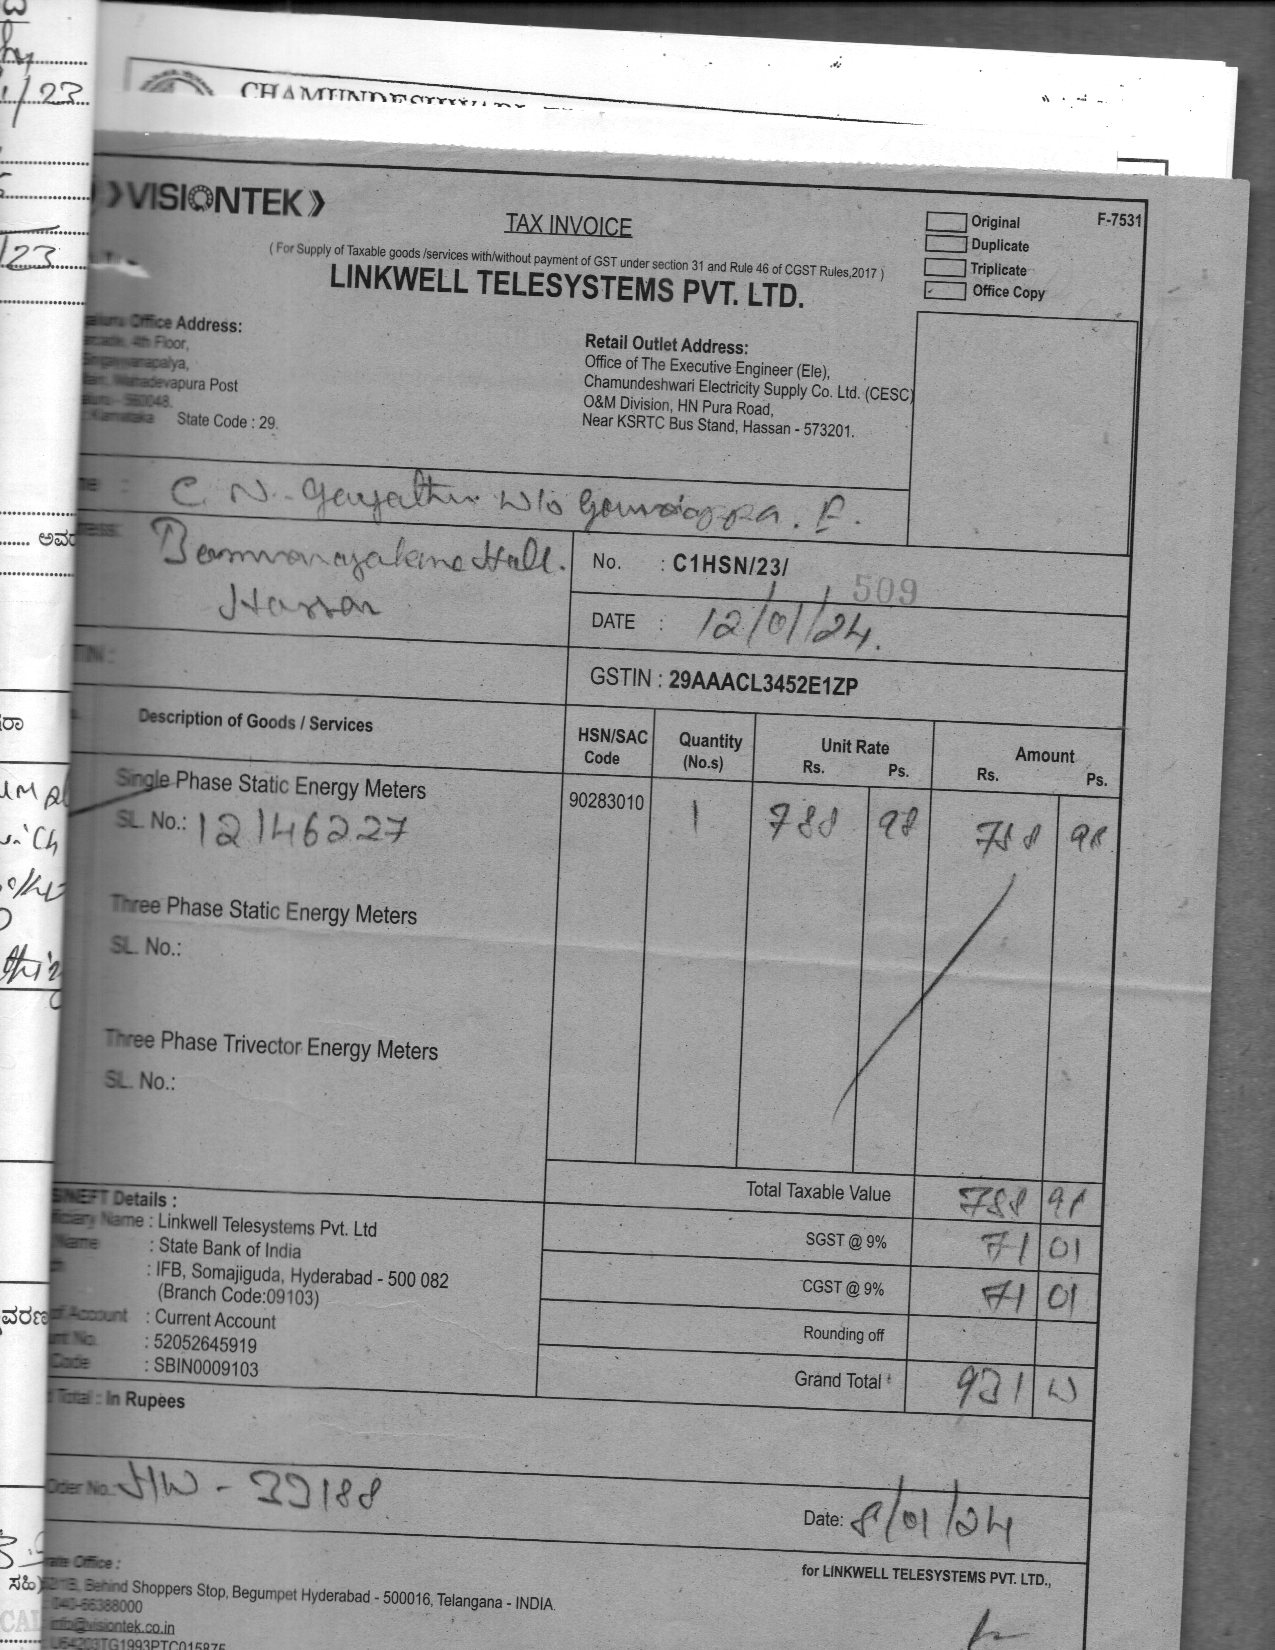 CHAMUNDESHWARI
VISIONTEK
TAX INVOICE
Original
Duplicate
Triplicate
Office Copy
F-7531
( For Supply of Taxable goods /services with/without payment of GST under section 31 and Rule 46 of CGST Rules,2017 )
LINKWELL TELESYSTEMS PVT. LTD.
Office Address:
4th Floor,
Mahadevapura Post
- 560048.
Karnataka State Code : 29.
Retail Outlet Address:
Office of The Executive Engineer (Ele),
Chamundeshwari Electricity Supply Co. Ltd. (CESC)
O&M Division, HN Pura Road,
Near KSRTC Bus Stand, Hassan - 573201.
C. N. Gayathri W/o
Hassan
No. : C1HSN/23/ 509
DATE : 12/01/24.
GSTIN : 29AAACL3452E1ZP
Description of Goods / Services
HSN/SAC Code
Quantity (No.s)
Unit Rate Rs. Ps.
Amount Rs. Ps.
Single Phase Static Energy Meters
90283010 1 788 98 788 98
SL. No.: 12146227
Three Phase Static Energy Meters
SL. No.:
Three Phase Trivector Energy Meters
SL. No.:
Total Taxable Value 788 98
SGST @ 9% 71 01
CGST @ 9% 71 01
Rounding off
Grand Total 931
NEFT Details :
Name : Linkwell Telesystems Pvt. Ltd
Name : State Bank of India
: IFB, Somajiguda, Hyderabad - 500 082
(Branch Code:09103)
of Account : Current Account
: 52052645919
Code : SBIN0009103
Total : In Rupees
Order No.: HW - 33188
Date: 8/01/24
Office :
Behind Shoppers Stop, Begumpet Hyderabad - 500016, Telangana - INDIA.
040-66388000
info@visiontek.co.in
U64203TG1993PTC015875
for LINKWELL TELESYSTEMS PVT. LTD.,